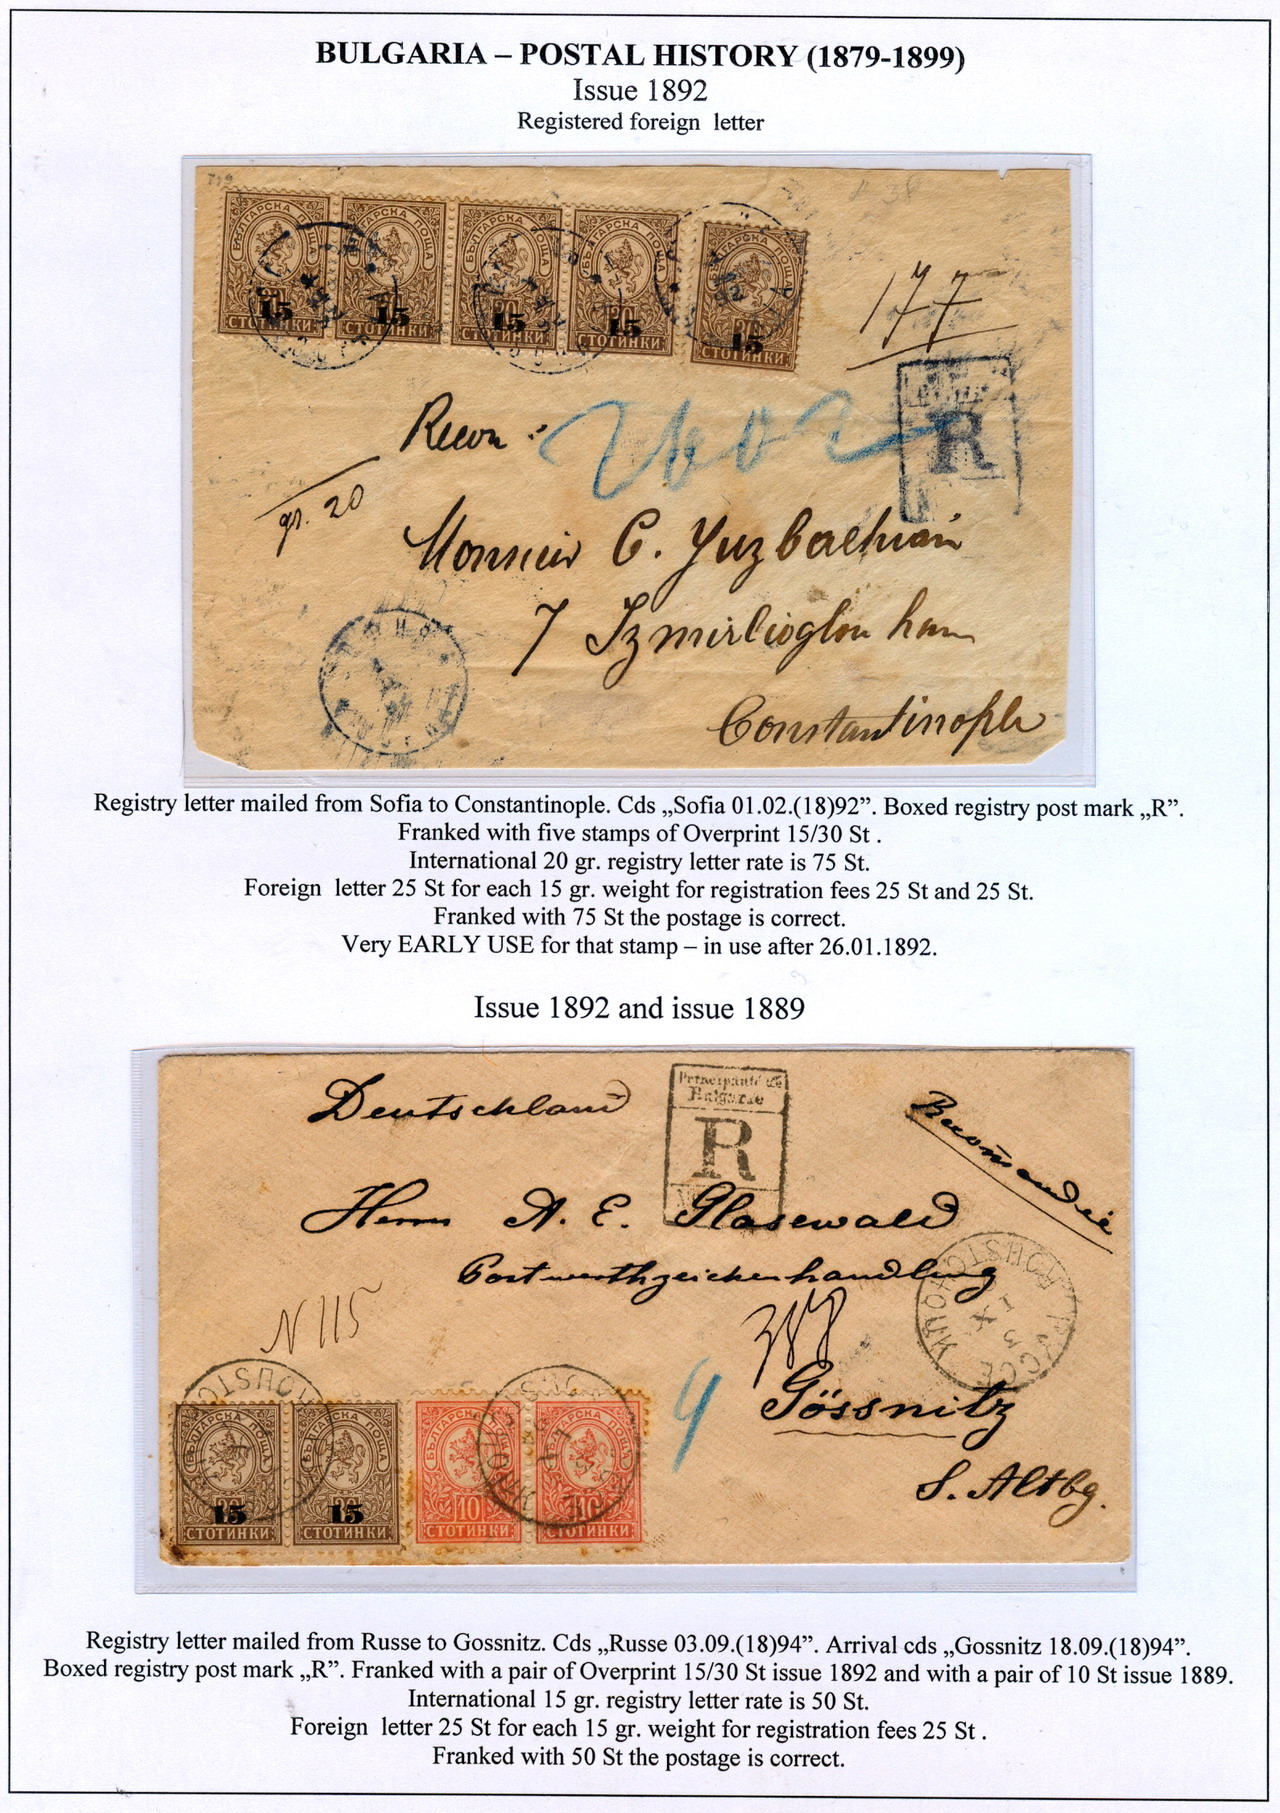 BULGARIA – POSTAL HISTORY (1879-1899)
Issue 1892
Registered foreign letter
БЪЛГАРСКА ПОЩА
15
СТОТИНКИ
БЪЛГАРСКА ПОЩА
15
СТОТИНКИ
БЪЛГАРСКА ПОЩА
15
СТОТИНКИ
БЪЛГАРСКА ПОЩА
15
СТОТИНКИ
БЪЛГАРСКА ПОЩА
15
СТОТИНКИ
177
R
Recom:
2602
gr. 20
Monsieur C. Yuzbachian
7 Izmirlioglou han
Constantinople
Registry letter mailed from Sofia to Constantinople. Cds „Sofia 01.02.(18)92”. Boxed registry post mark „R”.
Franked with five stamps of Overprint 15/30 St .
International 20 gr. registry letter rate is 75 St.
Foreign letter 25 St for each 15 gr. weight for registration fees 25 St and 25 St.
Franked with 75 St the postage is correct.
Very EARLY USE for that stamp – in use after 26.01.1892.
Issue 1892 and issue 1889
Deutschland
Principauté de
Bulgarie
R
Recomandie
Herrn A. E. Glasewald
Postwerthzeichenhandlung
N 115
388
Gössnitz
S. Altbg.
РУССЕ
ROUSTCHOUK
БЪЛГАРСКА ПОЩА
15
СТОТИНКИ
БЪЛГАРСКА ПОЩА
15
СТОТИНКИ
БЪЛГАРСКА ПОЩА
10
СТОТИНКИ
БЪЛГАРСКА ПОЩА
10
СТОТИНКИ
Registry letter mailed from Russe to Gossnitz. Cds „Russe 03.09.(18)94”. Arrival cds „Gossnitz 18.09.(18)94”.
Boxed registry post mark „R”. Franked with a pair of Overprint 15/30 St issue 1892 and with a pair of 10 St issue 1889.
International 15 gr. registry letter rate is 50 St.
Foreign letter 25 St for each 15 gr. weight for registration fees 25 St .
Franked with 50 St the postage is correct.